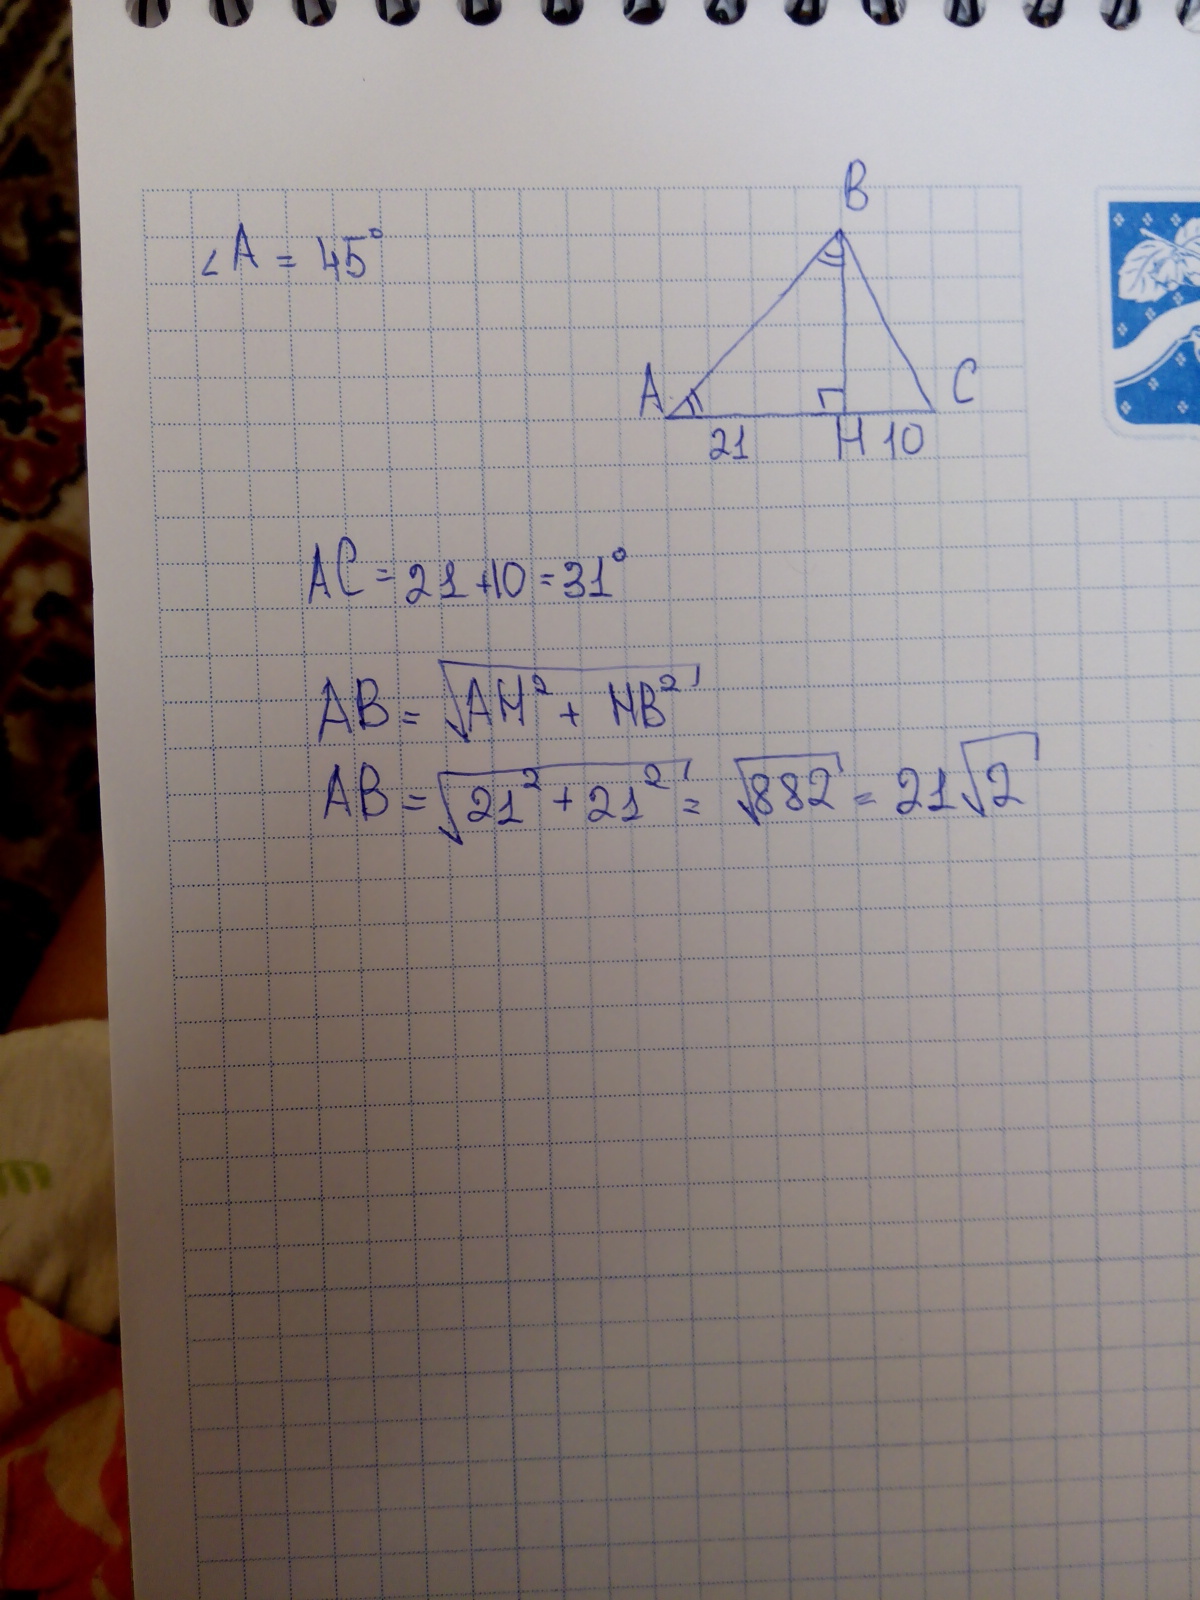 ∠A = 45°
B
A
C
21
H
10
AC = 21+10 = 31°
AB = √AH² + HB²
AB = √21² + 21² = √882 = 21√2